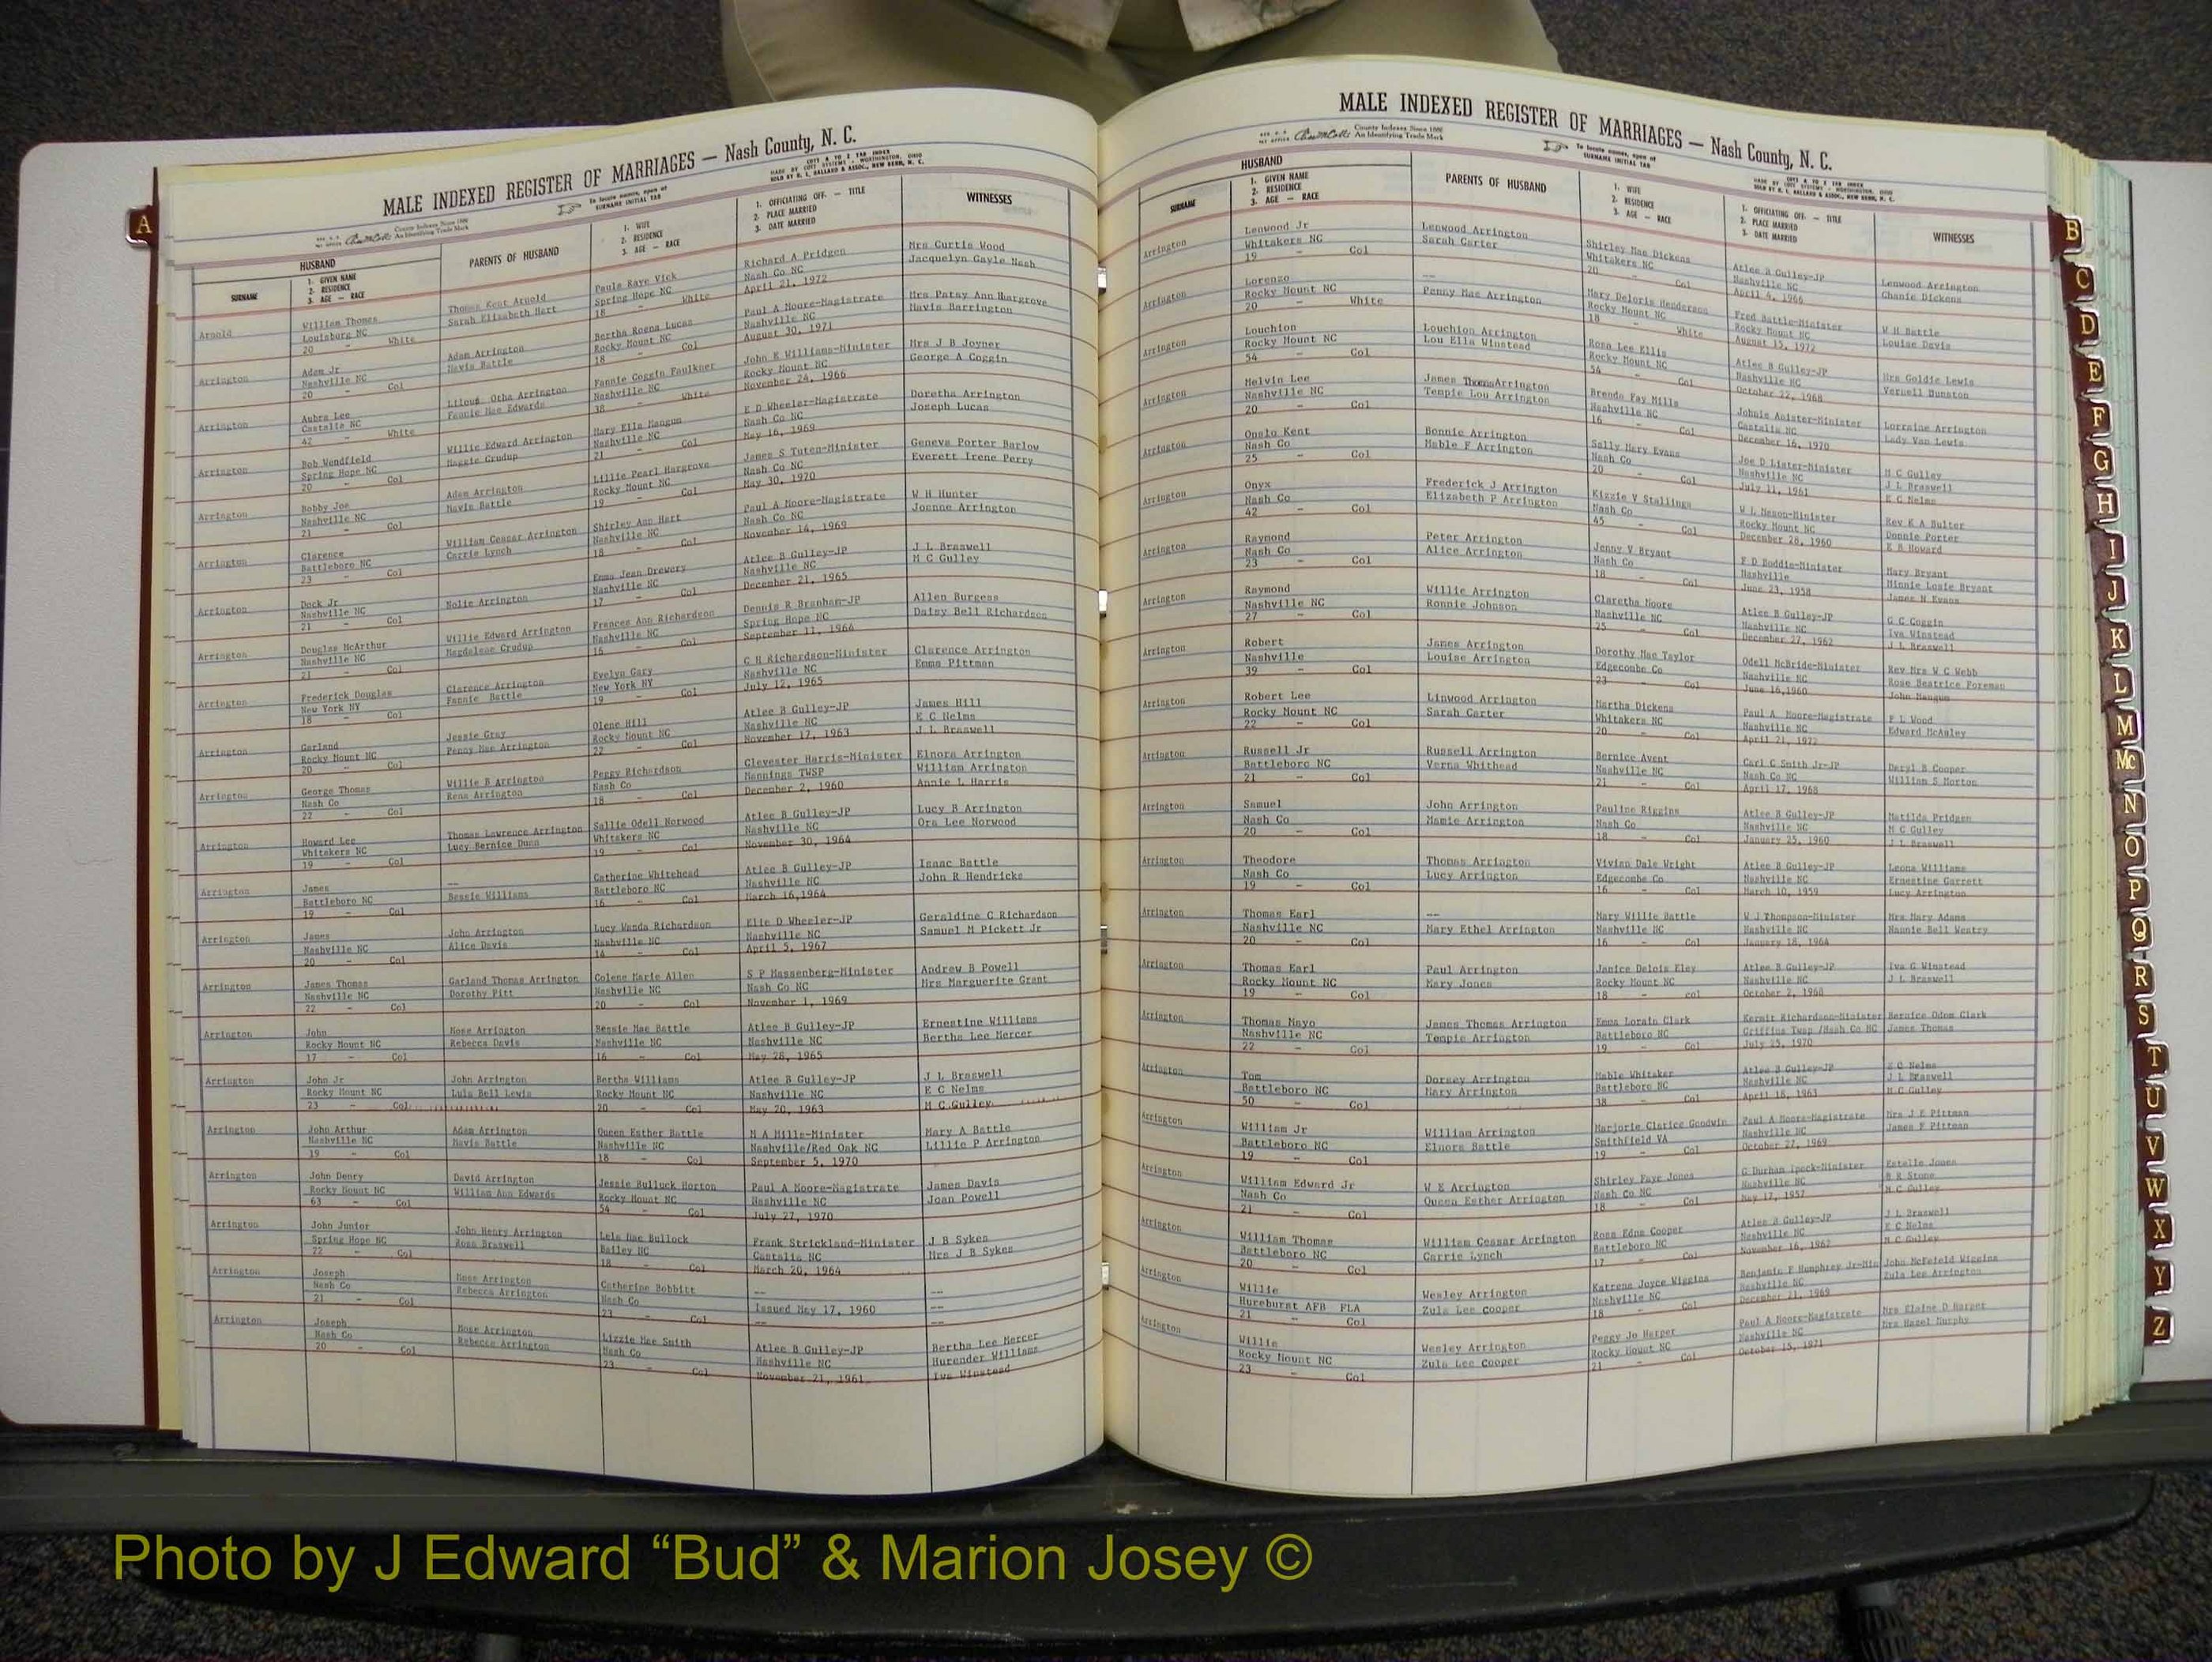 MALE INDEXED REGISTER OF MARRIAGES — Nash County, N. C.
To locate names, open at
SURNAME INITIAL TAB
COTT A TO Z TAB INDEX
MADE BY COTT SYSTEMS - WORTHINGTON, OHIO
SOLD BY O. L. BALLARD & ASSOC., NEW BERN, N. C.
County Indexes Since 1888
An Identifying Trade Mark
HUSBAND
SURNAME
1. GIVEN NAME
2. RESIDENCE
3. AGE — RACE
PARENTS OF HUSBAND
1. WIFE
2. RESIDENCE
3. AGE — RACE
1. OFFICIATING OFF. - TITLE
2. PLACE MARRIED
3. DATE MARRIED
WITNESSES
Arnold William Thomas Thomas Kent Arnold Paula Kaye Vick Richard A Pridgen Mrs Curtis Wood
Louisburg NC Sarah Elizabeth Hart Spring Hope NC Nash Co NC Jacquelyn Gayle Nash
20 - White 18 - White April 21, 1972
Arrington Adam Jr Adam Arrington Bertha Roena Lucas Paul A Moore-Magistrate Mrs Patsy Ann Hargrove
Nashville NC Mavis Battle Rocky Mount NC Nashville NC Mavis Barrington
20 - Col 18 - Col August 30, 1971
Arrington Aubra Lee Otha Arrington Fannie Coggin Faulkner John E Williams-Minister Mrs J B Joyner
Castalia NC Fannie Mae Edwards Nashville NC Rocky Mount NC George A Coggin
42 - White 38 - White November 24, 1966
Arrington Bob Wendfield Willie Edward Arrington Mary Ella Mangum E D Wheeler-Magistrate Doretha Arrington
Spring Hope NC Maggie Crudup Nashville NC Nash Co NC Joseph Lucas
20 - Col 21 - Col May 16, 1969
Arrington Bobby Joe Adam Arrington Lillie Pearl Hargrove James S Tuten-Minister Geneva Porter Barlow
Nashville NC Mavis Battle Rocky Mount NC Nash Co NC Everett Irene Perry
21 - Col 19 - Col May 30, 1970
Arrington Clarence William Ceasar Arrington Shirley Ann Hart Paul A Moore-Magistrate W H Hunter
Battleboro NC Carrie Lynch Nashville NC Nash Co NC Joanne Arrington
23 - Col 18 - Col November 14, 1969
Arrington Dock Jr Nolie Arrington Emma Jean Drewery Atlee B Gulley-JP J L Braswell
Nashville NC Nashville NC Nashville NC M C Gulley
21 - Col 17 - Col December 21, 1965
Arrington Douglas McArthur Willie Edward Arrington Frances Ann Richardson Dennis R Branham-JP Allen Burgess
Nashville NC Magdelene Crudup Nashville NC Spring Hope NC Daisy Bell Richardson
21 - Col 16 - Col September 11, 1964
Arrington Frederick Douglas Clarence Arrington Evelyn Gary C H Richardson-Minister Clarence Arrington
New York NY Fannie Battle New York NY Nashville NC Emma Pittman
18 - Col 19 - Col July 12, 1965
Arrington Garland Jessie Gray Olene Hill Atlee B Gulley-JP James Hill
Rocky Mount NC Penny Mae Arrington Rocky Mount NC Nashville NC E C Nelms
20 - Col 22 - Col November 17, 1963 J L Braswell
Arrington George Thomas Willie B Arrington Peggy Richardson Clevester Harris-Minister Elnora Arrington
Nash Co Rena Arrington Nash Co Mannings TWSP William Arrington
22 - Col 18 - Col December 2, 1960 Annie L Harris
Arrington Howard Lee Thomas Lawrence Arrington Sallie Odell Norwood Atlee B Gulley-JP Lucy B Arrington
Whitakers NC Lucy Bernice Dunn Whitakers NC Nashville NC Ora Lee Norwood
19 - Col 19 - Col November 30, 1964
Arrington James -- Catherine Whitehead Atlee B Gulley-JP Isaac Battle
Battleboro NC Bessie Williams Battleboro NC Nashville NC John R Hendricks
19 - Col 16 - Col March 16,1964
Arrington James John Arrington Lucy Wanda Richardson Elie D Wheeler-JP Geraldine C Richardson
Nashville NC Alice Davis Nashville NC Nashville NC Samuel M Pickett Jr
20 - Col 14 - Col April 5, 1967
Arrington James Thomas Garland Thomas Arrington Colene Marie Allen S P Massenberg-Minister Andrew B Powell
Nashville NC Dorothy Pitt Nashville NC Nash Co NC Mrs Marguerite Grant
22 - Col 20 - Col November 1, 1969
Arrington John Mose Arrington Bessie Mae Battle Atlee B Gulley-JP Ernestine Williams
Rocky Mount NC Rebecca Davis Nashville NC Nashville NC Bertha Lee Mercer
17 - Col 16 - Col May 28, 1965
Arrington John Jr John Arrington Bertha Williams Atlee B Gulley-JP J L Braswell
Rocky Mount NC Lula Bell Lewis Rocky Mount NC Nashville NC E C Nelms
23 - Col 20 - Col May 20, 1963 M C Gulley
Arrington John Arthur Adam Arrington Queen Esther Battle M A Mills-Minister Mary A Battle
Nashville NC Mavis Battle Nashville NC Nashville/Red Oak NC Lillie P Arrington
19 - Col 18 - Col September 5, 1970
Arrington John Denry David Arrington Jessie Bullock Horton Paul A Moore-Magistrate James Davis
Rocky Mount NC William Ann Edwards Rocky Mount NC Nashville NC Joan Powell
63 - Col 54 - Col July 27, 1970
Arrington John Junior John Henry Arrington Lela Mae Bullock Frank Strickland-Minister J B Sykes
Spring Hope NC Rosa Braswell Bailey NC Castalia NC Mrs J B Sykes
22 - Col 18 - Col March 20, 1964
Arrington Joseph Mose Arrington Catherine Bobbitt -- --
Nash Co Rebecca Arrington Nash Co Issued May 17, 1960 --
21 - Col 23 - Col -- --
Arrington Joseph Mose Arrington Lizzie Mae Smith Atlee B Gulley-JP Bertha Lee Mercer
Nash Co Rebecca Arrington Nash Co Nashville NC Hurender Williams
20 - Col 23 - Col November 21, 1961 Iva Winstead
MALE INDEXED REGISTER OF MARRIAGES — Nash County, N. C.
County Indexes Since 1888
An Identifying Trade Mark
To locate names, open at
SURNAME INITIAL TAB
COTT A TO Z TAB INDEX
MADE BY COTT SYSTEMS - WORTHINGTON, OHIO
SOLD BY O. L. BALLARD & ASSOC., NEW BERN, N. C.
HUSBAND
SURNAME
1. GIVEN NAME
2. RESIDENCE
3. AGE — RACE
PARENTS OF HUSBAND
1. WIFE
2. RESIDENCE
3. AGE — RACE
1. OFFICIATING OFF. - TITLE
2. PLACE MARRIED
3. DATE MARRIED
WITNESSES
Arrington Lenwood Jr Lenwood Arrington Shirley Mae Dickens Atlee B Gulley-JP Lenwood Arrington
Whitakers NC Sarah Carter Whitakers NC Nashville NC Chanie Dickens
19 Col 20 - Col April 4, 1966
Arrington Lorenzo -- Mary Deloris Henderson Fred Battle-Minister W H Battle
Rocky Mount NC Penny Mae Arrington Rocky Mount NC Rocky Mount NC Louise Davis
20 - White 18 - White August 15, 1972
Arrington Louchion Louchion Arrington Rosa Lee Ellis Atlee B Gulley-JP Mrs Goldie Lewis
Rocky Mount NC Lou Ella Winstead Rocky Mount NC Nashville NC Vernell Dunston
54 - Col 54 - Col October 22, 1968
Arrington Melvin Lee James Thomas Arrington Brenda Fay Mills Johnis Lorraine Arrington
Nashville NC Tempie Lou Arrington Nashville NC Castalia NC Lady Van Lewis
20 - Col 16 - Col December 16, 1970
Arrington Onslo Kent Bonnie Arrington Sally Mary Evans Joe D Lister-Minister M C Gulley
Nash Co Mable F Arrington Nash Co Nashville NC J L Braswell
25 - Col 20 - Col July 11, 1961 E C Nelms
Arrington Onyx Frederick J Arrington Kizzie V Stallings W L Mason-Minister Rev K A Bulter
Nash Co Elizabeth P Arrington Nash Co Rocky Mount NC Donnie Porter
42 - Col 45 - Col December 28, 1960 E B Howard
Arrington Raymond Peter Arrington Jenny V Bryant F D Boddie-Minister Mary Bryant
Nash Co Alice Arrington Nash Co Nashville Minnie Losie Bryant
23 - Col 18 - Col June 23, 1958 James N Evans
Arrington Raymond Willie Arrington Claretha Moore Atlee B Gulley-JP G C Coggin
Nashville NC Ronnie Johnson Nashville NC Nashville NC Iva Winstead
27 - Col 25 - Col December 27, 1962 J L Braswell
Arrington Robert James Arrington Dorothy Mae Taylor Odell McBride-Minister Rev Mrs W C Webb
Nashville Louise Arrington Edgecombe Co Nashville NC Rose Beatrice Foreman
39 - Col 23 - Col June 16,1960 John Mangum
Arrington Robert Lee Linwood Arrington Martha Dickens Paul A Moore-Magistrate F L Wood
Rocky Mount NC Sarah Carter Whitakers NC Nashville NC Edward McAuley
22 - Col 20 - Col April 21, 1972
Arrington Russell Jr Russell Arrington Bernice Avent Carl C Smith Jr-JP Daryl B Cooper
Battleboro NC Verna Whithead Nashville NC Nash Co NC William S Morton
21 - Col 21 - Col April 17, 1968
Arrington Samuel John Arrington Pauline Riggins Atlee B Gulley-JP Matilda Pridgen
Nash Co Mamie Arrington Nash Co Nashville NC M C Gulley
20 - Col 18 - Col January 25, 1960 J L Braswell
Arrington Theodore Thomas Arrington Vivian Dale Wright Atlee B Gulley-JP Leona Williams
Nash Co Lucy Arrington Edgecombe Co Nashville NC Ernestine Garrett
19 - Col 16 - Col March 10, 1959 Lucy Arrington
Arrington Thomas Earl -- Mary Willie Battle W J Thompson-Minister Mrs Mary Adams
Nashville NC Mary Ethel Arrington Nashville NC Nashville NC Nannie Bell Westry
20 - Col 16 - Col January 18, 1964
Arrington Thomas Earl Paul Arrington Janice Delois Eley Atlee B Gulley-JP Iva G Winstead
Rocky Mount NC Mary Jones Rocky Mount NC Nashville NC J L Braswell
19 - Col 18 - col October 2, 1968
Arrington Thomas Mayo James Thomas Arrington Emma Lorain Clark Kermit Richardson-Minister Bernice Odom Clark
Nashville NC Tempie Arrington Battleboro NC Griffins Twsp /Nash Co NC James Thomas
22 - Col 19 - Col July 25, 1970
Arrington Tom Dorsey Arrington Mable Whitaker Atlee B Gulley-JP E C Nelms
Battleboro NC Mary Arrington Battleboro NC Nashville NC J L Braswell
50 - Col 38 - Col April 18, 1963 M C Gulley
Arrington William Jr William Arrington Marjorie Clarice Goodwin Paul A Moore-Magistrate Mrs J E Pittman
Battleboro NC Elnora Battle Smithfield VA Nashville NC James F Pittman
19 - Col 19 - Col October 27, 1969
Arrington William Edward Jr W E Arrington Shirley Faye Jones G Durham Ipock-Minister Estelle Jones
Nash Co Queen Esther Arrington Nash Co NC Nashville NC B R Stone
21 - Col 18 - Col May 17, 1957 M C Gulley
Arrington William Thomas William Ceasar Arrington Rosa Edna Cooper Atlee B Gulley-JP J L Braswell
Battleboro NC Carrie Lynch Battleboro NC Nashville NC E C Nelms
20 - Col 17 - Col November 16, 1962 M C Gulley
Arrington Willie Wesley Arrington Katrena Joyce Wiggins Benjamin F Humphrey Jr-Min John McFeield Wiggins
Hureburst AFB FLA Zula Lee Cooper Nashville NC Nashville NC Zula Lee Arrington
21 Col 18 - Col December 21, 1969
Arrington Willie Wesley Arrington Peggy Jo Harper Paul A Moore-Magistrate Mrs Elaine D Harper
Rocky Mount NC Zula Lee Cooper Rocky Mount NC Nashville NC Mrs Hazel Murphy
23 - Col 21 - Col October 15, 1971
A
B
C
D
E
F
G
H
I
J
K
L
M
Mc
N
O
P
Q
R
S
T
U
V
W
X
Y
Z
Photo by J Edward “Bud” & Marion Josey ©